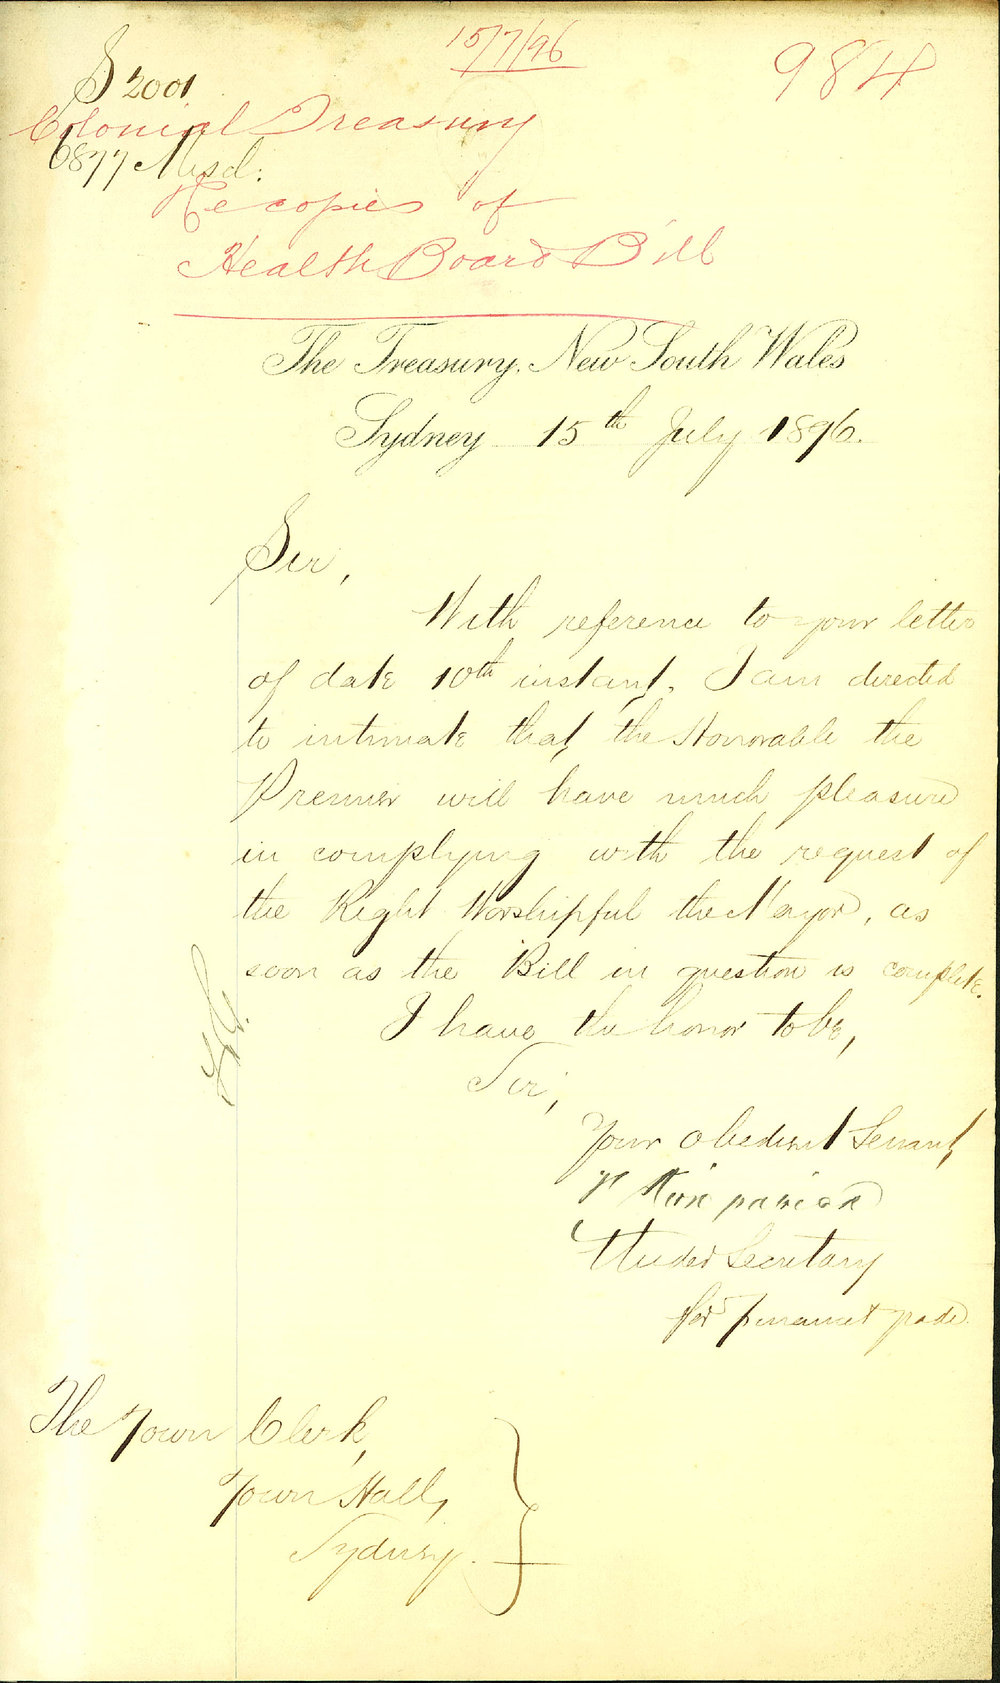 15/7/96
984
S 2001
Colonial Treasury
6877 Misd:
Re copies of
Health Board Bill
The Treasury, New South Wales
Sydney 15th July 1896.
Sir,
With reference to your letter
of date 10th instant, I am directed
to intimate that the Honorable the
Premier will have much pleasure
in complying with the request of
the Right Worshipful the Mayor, as
soon as the Bill in question is complete.
I have the honor to be,
Sir,
Your obedient Servant,
Kirkpatrick
Under Secretary
for Finance & Trade.
The Town Clerk,
Town Hall,
Sydney.